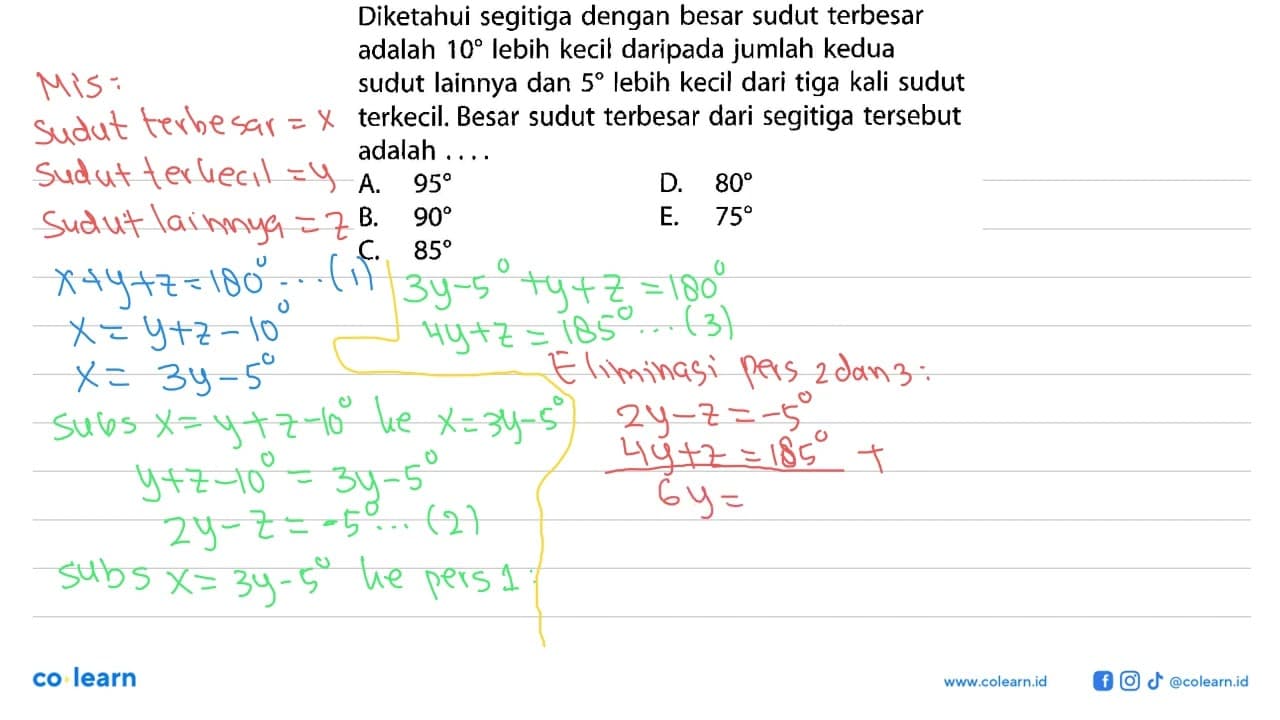 Diketahui segitiga dengan besar sudut terbesar
adalah 10° lebih kecil daripada jumlah kedua
sudut lainnya dan 5° lebih kecil dari tiga kali sudut
terkecil. Besar sudut terbesar dari segitiga tersebut
adalah . . . .
A. 95°
B. 90°
C. 85°
D. 80°
E. 75°
Mis:
Sudut terbesar = x
Sudut terkecil = y
Sudut lainnya = z
x+y+z=180° ... (1)
x = y+z-10°
x = 3y-5°
subs x=y+z-10° ke x=3y-5°
y+z-10° = 3y-5°
2y-z = -5° ... (2)
subs x=3y-5° ke pers 1:
3y-5°+y+z=180°
4y+z=185° ... (3)
Eliminasi pers 2 dan 3:
2y-z=-5°
4y+z=185° +
6y=
co learn
www.colearn.id
@colearn.id